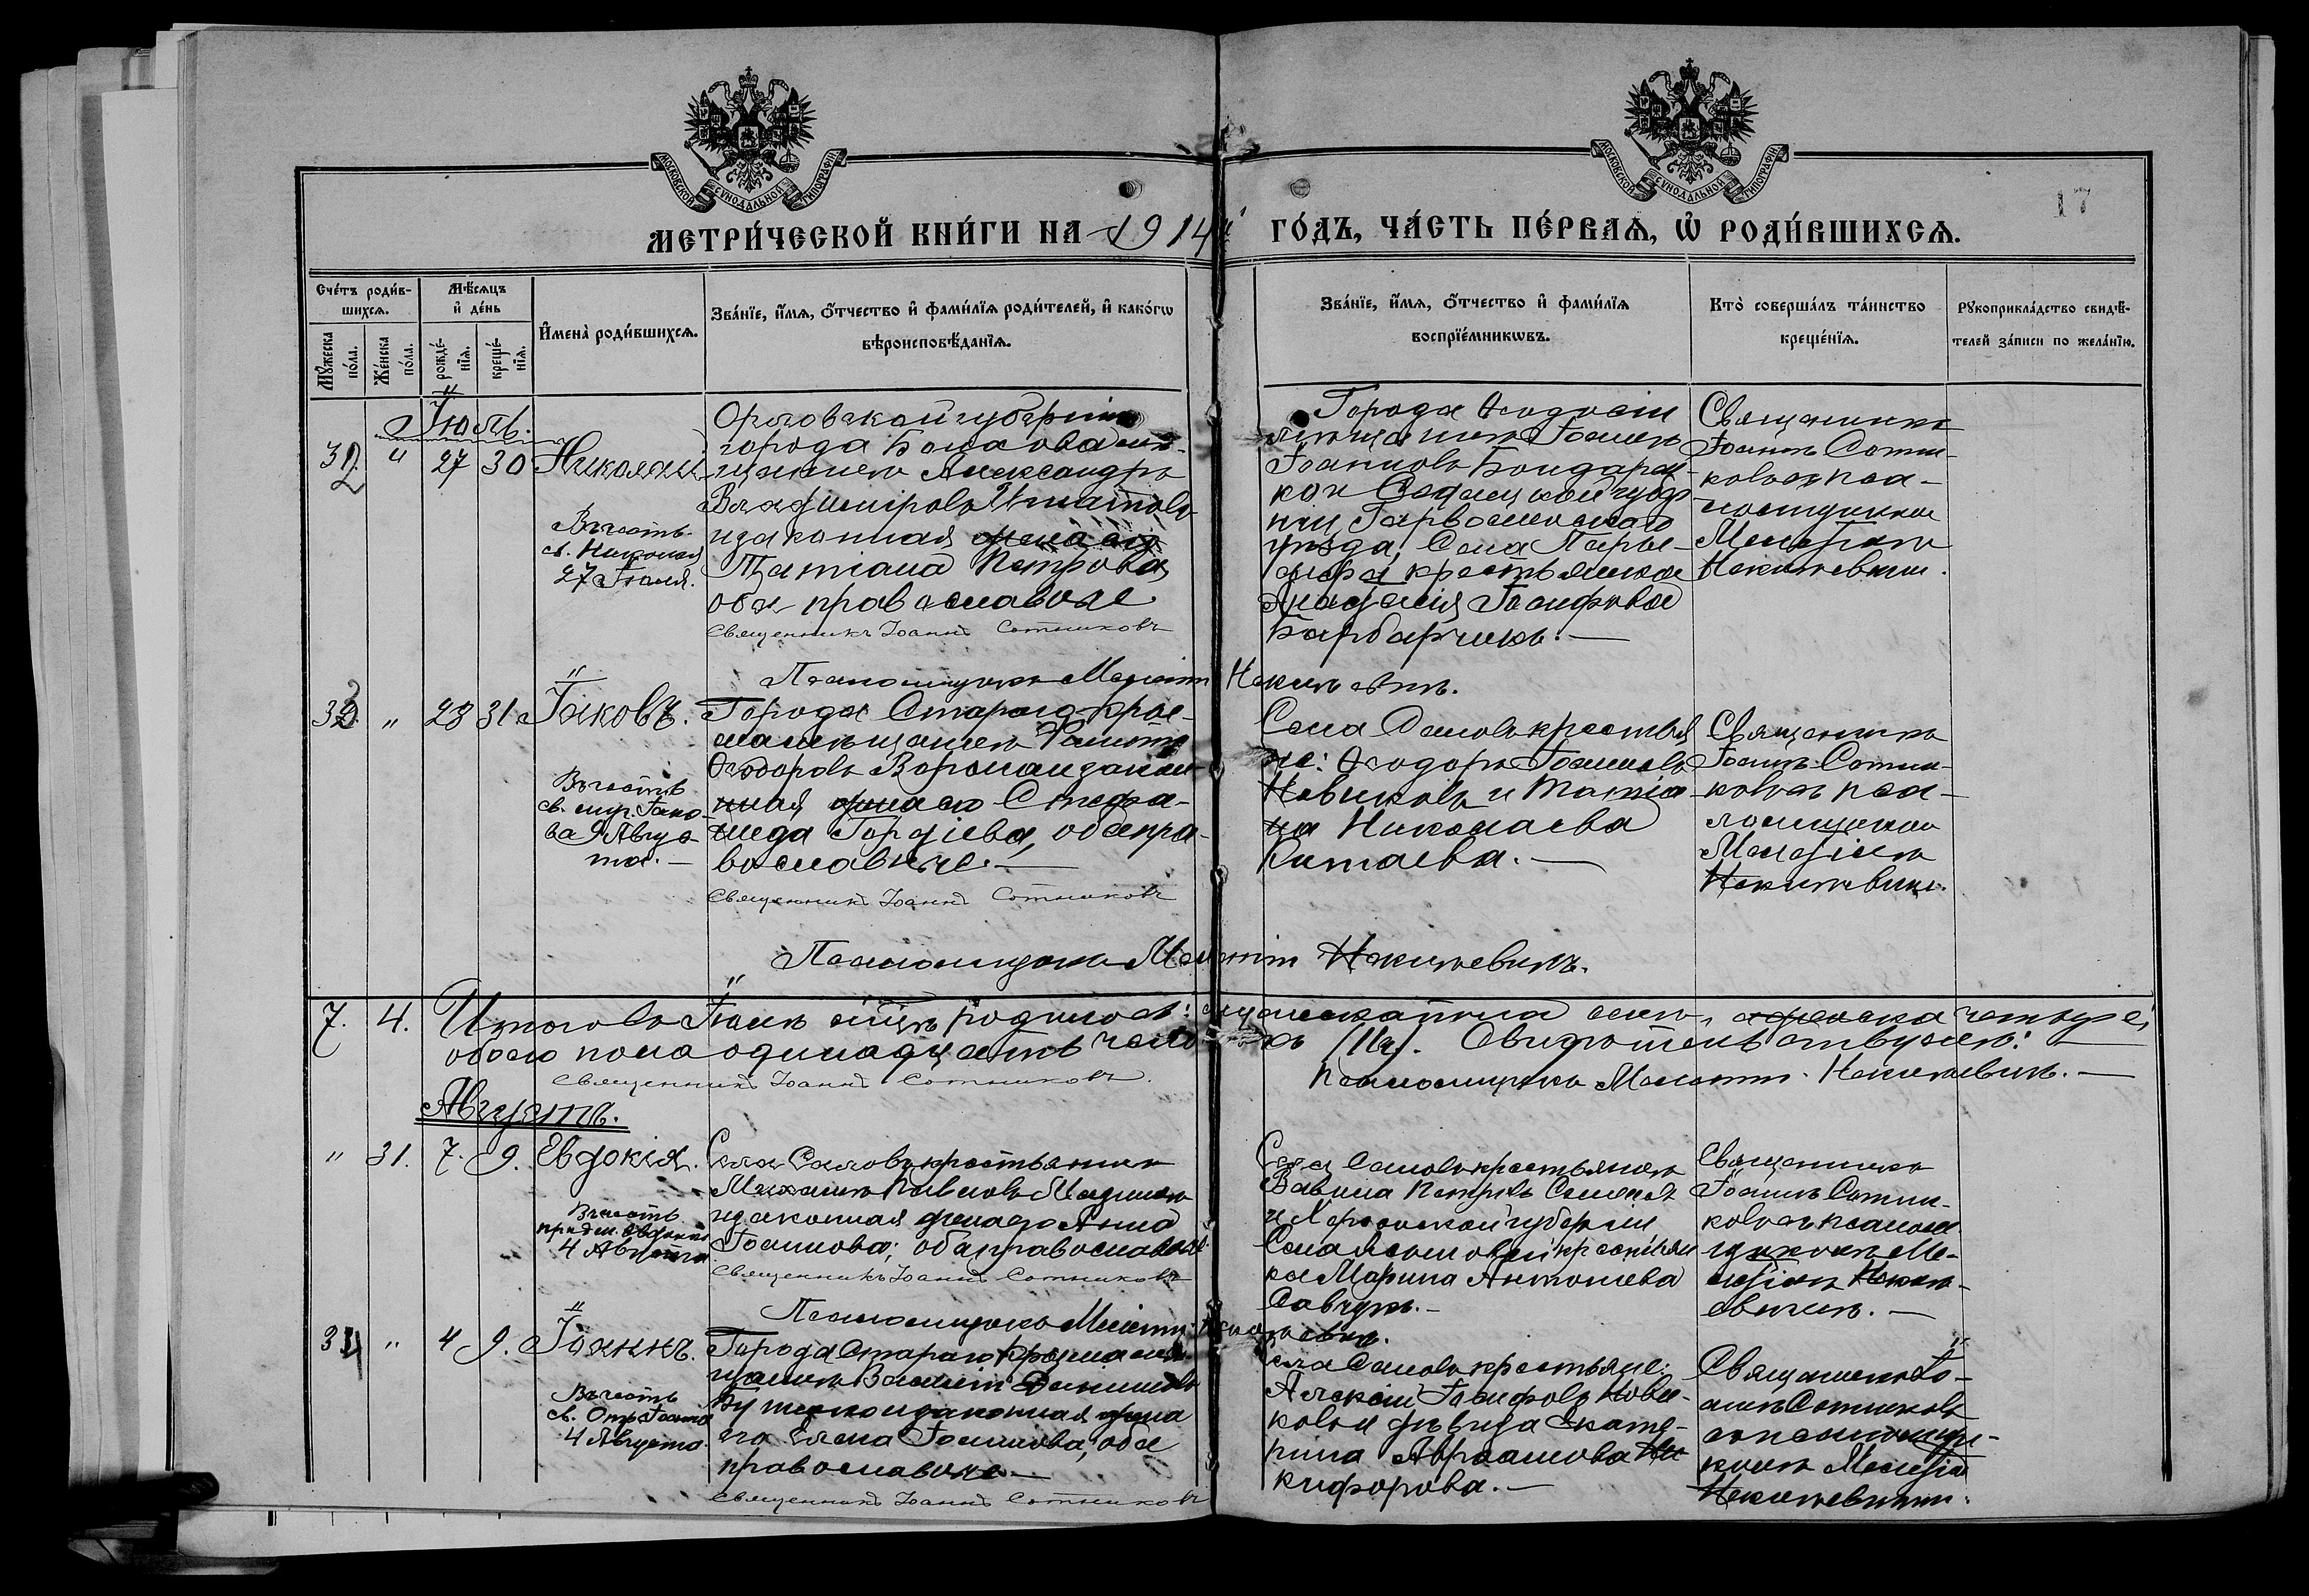 МОСКОВСКОЙ СѴНОДАЛЬНОЙ ТИПОГРАФІИ
МОСКОВСКОЙ СѴНОДАЛЬНОЙ ТИПОГРАФІИ
17
МЕТРИ́ЧЕСКОЙ КНИ́ГИ НА 1914й ГО́ДЪ, ЧА́СТЬ ПЕ́РВАѦ, Ѡ҆ РОДИ́ВШИХСѦ.
Сче́тъ роди́в-
шихсѧ.
Мꙋжеска по́ла.
Же́нска по́ла.
Мѣ́сѧцъ
и҆ де́нь
рожде́-
нїѧ.
креще́-
нїѧ.
И҆мена̀ роди́вшихсѧ.
Зва́нїе, и҆́мѧ, ѻ҆́тчество и҆ фами́лїѧ роди́телей, и҆ како́гѡ
вѣроисповѣ́данїѧ.
Зва́нїе, и҆́мѧ, ѻ҆́тчество и҆ фами́лїѧ
воспрїе́мникѡвъ.
Кто̀ соверша́лъ та́инство
креще́нїѧ.
Рꙋкоприкла́дство свидѣ́-
телей за́писи по жела́нїю.
Іюль.
32 " 27 30 Николай
Въ честь
св. Николая
27 Іюля.
Орловской губерніи
города Болхова мѣ-
щанинъ Александръ
Владиміровъ Игнатовъ
и законная жена его
Татіана Петрова,
оба православные.
Священникъ Іоаннъ Сотниковъ
Города Ѳеодосіи
мѣщанинъ Іоаннъ
Іоанновъ Бондарен-
ко и Сѣдлецкой губер-
ніи Гарволинскаго
уѣзда, Села
крестьянка
Іосифова
Священникъ
Іоаннъ Сотни-
ковъ съ пса-
ломщикомъ
Мелетіемъ
Некижевичи.
Псаломщикъ Мелетій Некижевичъ.
33. " 28 31. Іаковъ.
Въ честь
св. муч. Іако-
ва 9 Авгус-
та.
Города Стараго Кры-
ма мѣщанинъ
Ѳеодоровъ и закон-
ная жена его Стефа-
нида Гордіева, оба пра-
вославные.
Священникъ Іоаннъ Сотниковъ
Села Саловъ крестья-
не: Ѳеодоръ Іоанновъ
Новиковъ и Татіа-
на Николаева
Китаева.
Священникъ
Іоаннъ Сотни-
ковъ съ пса-
ломщикомъ
Мелетіемъ
Некижевичи.
Псаломщикъ Мелетій Некижевичъ.
7. 4. Итого въ Іюлѣ мѣсяцѣ родилось: мужеска пола семь, женска четыре,
обоего пола одинадцать человѣкъ /11/. Свидѣтельствуемъ:
Священникъ Іоаннъ Сотниковъ.
Псаломщикъ Мелетій Некижевичъ.
Августъ.
" 31. 7. 9. Евдокія.
Въ честь
препод. Евдокіи
4 Августа
Села Саловъ крестьянинъ
Михаилъ Павловъ
и законная жена его Анна
Іоаннова; оба православные.
Священникъ Іоаннъ Сотниковъ
Села Саловъ крестьянинъ
Вавила Петровъ
и Херсонской губерніи
Села крестьян-
ка Марина Антонева
Савчукъ.
Священникъ
Іоаннъ Сотни-
ковъ съ псалом-
щикомъ Ме-
летіемъ Некиж-
евичемъ.
Псаломщикъ Мелетій Некижевичъ.
34 " 4 9. Іоаннъ.
Въ честь
св. Отр. Іоанна
4 Августа.
Города Стараго Крыма мѣ-
щанинъ Василій
и законная жена
его Елена Іоаннова, оба
православные.
Священникъ Іоаннъ Сотниковъ
Села Саловъ крестьяне:
Алексій Іосифовъ Нови-
ковъ и дѣвица Екате-
рина Авраамова Ни-
кифорова.
Священникъ Іо-
аннъ Сотниковъ
съ псаломщи-
комъ Мелетіемъ
Некижевичи.